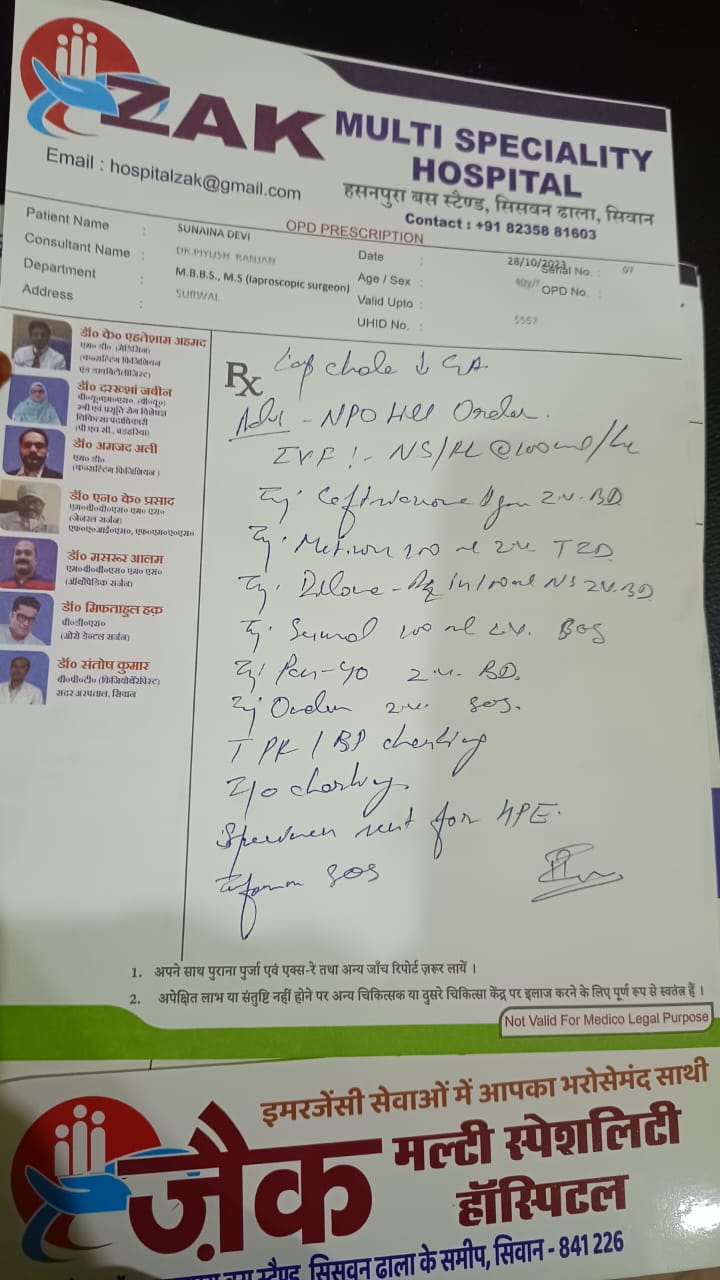 ZAK MULTI SPECIALITY
HOSPITAL
Email : hospitalzak@gmail.com
हसनपुरा बस स्टैण्ड, सिसवन ढाला, सिवान
Contact : +91 82358 81603
OPD PRESCRIPTION
Patient Name : SUNAINA DEVI
Consultant Name : DR.PIYUSH RANJAN
Department : M.B.B.S., M.S (laproscopic surgeon)
Address : SURWAL
Date : 28/10/2023
Serial No. : 07
Age / Sex :
OPD No. :
Valid Upto :
UHID No. : 5557
डॉ० के० एहतेशाम अहमद
एम० डी० (मेडिसिन)
(कन्सल्टिंग फिजिशियन
एंड डायबिटोलॉजिस्ट)
डॉ० दरख्शां जबीन
स्त्री एवं प्रसूति रोग विशेषज्ञ
चिकित्सा पदाधिकारी
(पी.एच.सी., बड़हरिया)
डॉ० अमजद अली
एम० डी०
(कन्सल्टिंग फिजिशियन)
डॉ० एन० के० प्रसाद
एम०बी०बी०एस० एम० एस०
(जेनरल सर्जन)
एफ०ए०आई०एस०, एफ०एम०ए०एस०
डॉ० मसरूर आलम
एम०बी०बी०एस० एम० एस०
(ऑर्थोपेडिक सर्जन)
डॉ० मिफताहुल हक़
बी०डी०एस०
(ओरो डेन्टल सर्जन)
डॉ० संतोष कुमार
बी०पी०टी० (फिजियोथेरेपिस्ट)
सदर अस्पताल, सिवान
Rx
Lap chole ↓ GA
Adv - NPO till Order.
IVF :- NS/RL @100ml/hr
Inj. Ceftriaxone 1gm I.V. BD
Inj. Metron 100 ml I.V. TID
Inj. in 100ml NS I.V. BD
Inj. 100 ml I.V.
Inj. Pan-40 I.V. BD.
Inj I.V. SOS.
TPR / BP charting
I/O charting
Specimen sent for HPE.
Inform SOS
1. अपने साथ पुराना पुर्जा एवं एक्स-रे तथा अन्य जाँच रिपोर्ट ज़रूर लायें ।
2. अपेक्षित लाभ या संतुष्टि नहीं होने पर अन्य चिकित्सक या दुसरे चिकित्सा केंद्र पर इलाज करने के लिए पूर्ण रूप से स्वतंत्र हैं ।
Not Valid For Medico Legal Purpose
इमरजेंसी सेवाओं में आपका भरोसेमंद साथी
ज़ैक मल्टी स्पेशलिटी
हॉस्पिटल
बस स्टैण्ड, सिसवन ढाला के समीप, सिवान - 841 226